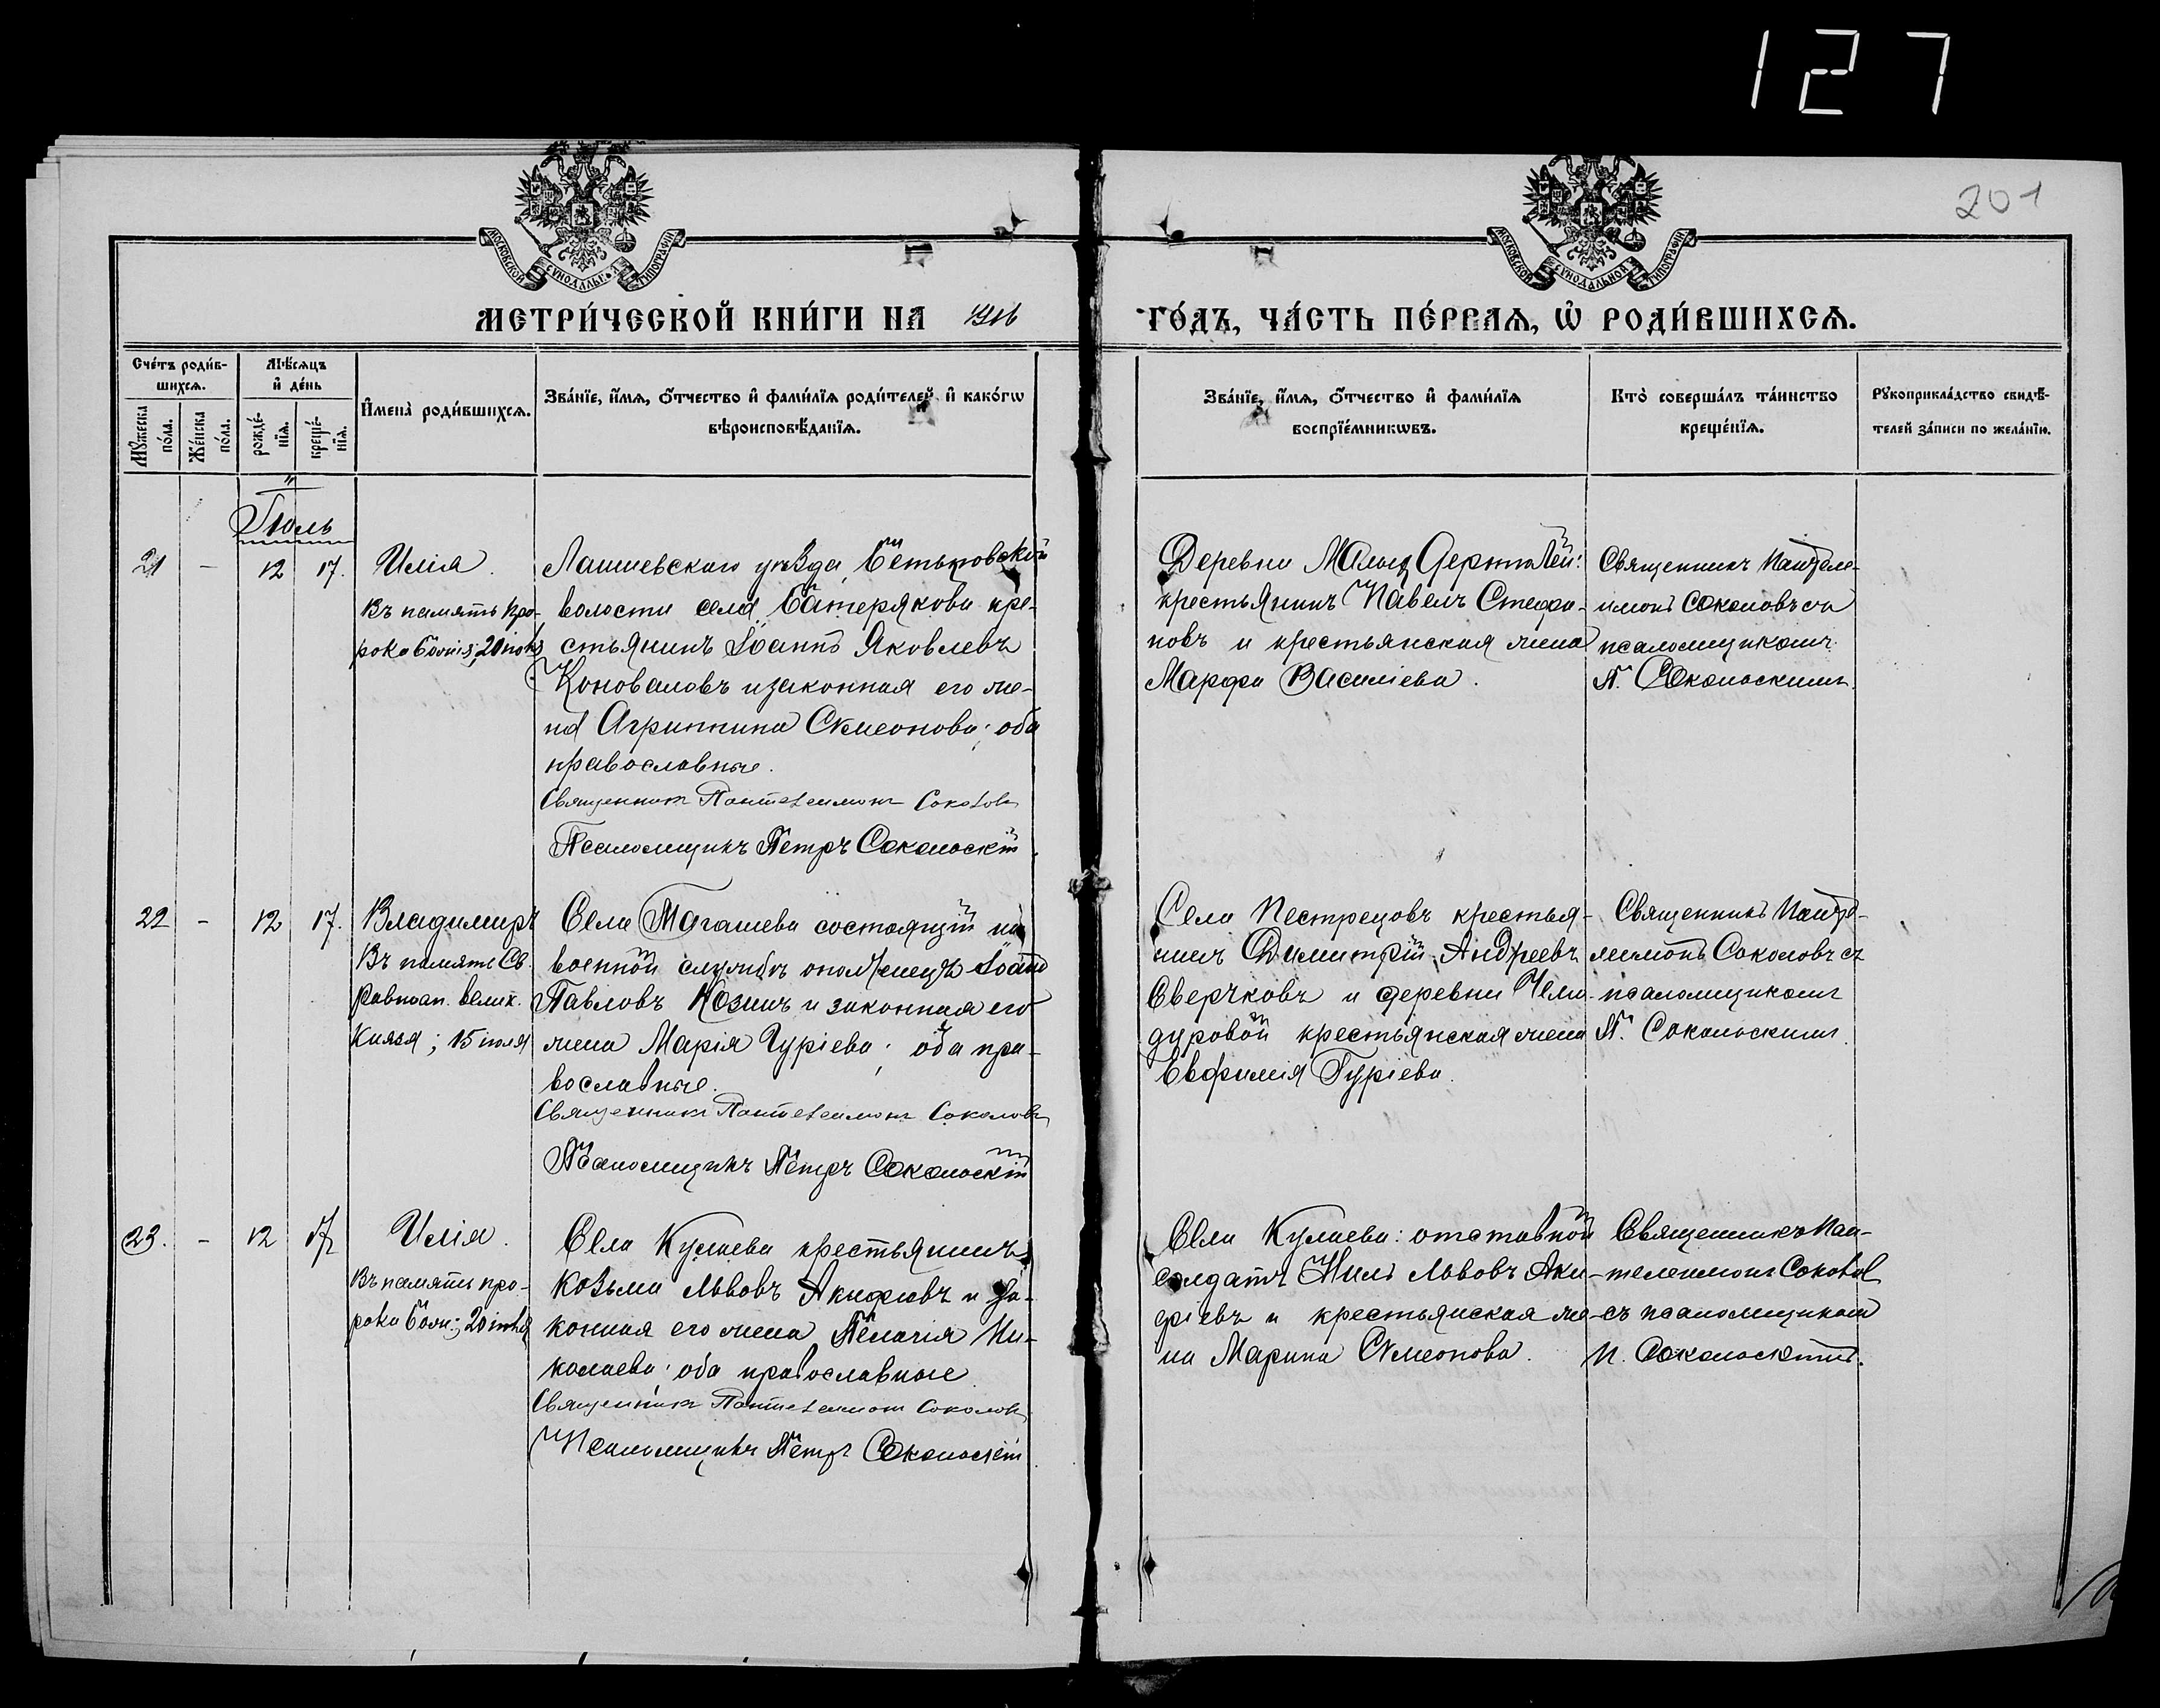 127
201
МОСКОВСКОЙ СѴНОДАЛЬНОЙ ТИПОГРАФІИ
МОСКОВСКОЙ СѴНОДАЛЬНОЙ ТИПОГРАФІИ
МЕТРИ́ЧЕСКОЙ КНИ́ГИ НА 1916
ГО́ДЪ, ЧА́СТЬ ПЕ́РВАѦ, Ѡ҆ РОДИ́ВШИХСѦ.
Сче́тъ роди́в-
шихсѧ.
Мꙋ́жеска по́ла.
Же́нска по́ла.
Мѣ́сѧцъ
и҆ де́нь
рожде́-
нїѧ.
креще́-
нїѧ.
И҆мена̀ роди́вшихсѧ.
Зва́нїе, и҆́мѧ, ѻ҆́тчество и҆ фами́лїѧ роди́телей, и҆ како́гѡ
вѣроисповѣ́данїѧ.
Зва́нїе, и҆́мѧ, ѻ҆́тчество и҆ фами́лїѧ
воспрїе́мникѡвъ.
Кто̀ соверша́лъ та́инство
креще́нїѧ.
Рꙋкоприкла́дство свидѣ́-
телей за́писи по жела́нїю.
Іюль
21 - 12 17.
Илія.
Въ память про-
рока Божія; 20 іюля
Лаишевскаго уѣзда, Бетьковской
волости села Батерякова кре-
стьянинъ Іоаннъ Яковлевъ
Коноваловъ и законная его же-
на Агрипина Симеонова; оба
православные.
Священникъ Пантелеимонъ Соколовъ
Псаломщикъ Петръ Сокольскій
Деревни Малы Дерт
крестьянинъ Павелъ Стефа-
новъ и крестьянская жена
Марфа Василіева.
Священникъ Пантеле-
имонъ Соколовъ съ
псаломщикомъ
П. Сокольскимъ.
22 - 12 17.
Владимиръ
Въ память Св.
Равноап. велик.
Князя; 15 іюля
Села Тагашева состоящій на
военной службѣ ополченецъ Іоаннъ
Павловъ Козинъ и законная его
жена Марія Гуріева; оба пра-
вославные.
Священникъ Пантелеимонъ Соколовъ
Псаломщикъ Петръ Сокольскій
Села Пестрецовъ крестья-
нинъ Димитрій Андреевъ
Сверчковъ и деревни Чели-
дуровой крестьянская жена
Евфимія Гуріева.
Священникъ Пантеле-
имонъ Соколовъ съ
псаломщикомъ
П. Сокольскимъ.
23. - 12 17
Илія.
Въ память про-
рока Божія; 20 іюля
Села Кулаева крестьянинъ
Козьма Львовъ Акифіевъ и за-
конная его жена Пелагія Ни-
колаева; оба православные
Священникъ Пантелеимонъ Соколовъ
Псаломщикъ Петръ Сокольскій
Села Кулаева: отставной
солдатъ Нилъ Львовъ Аки-
фіевъ и крестьянская же-
на Марина Симеонова.
Священникъ Пан-
телеимонъ Соколовъ
съ псаломщикомъ
П. Сокольскимъ.